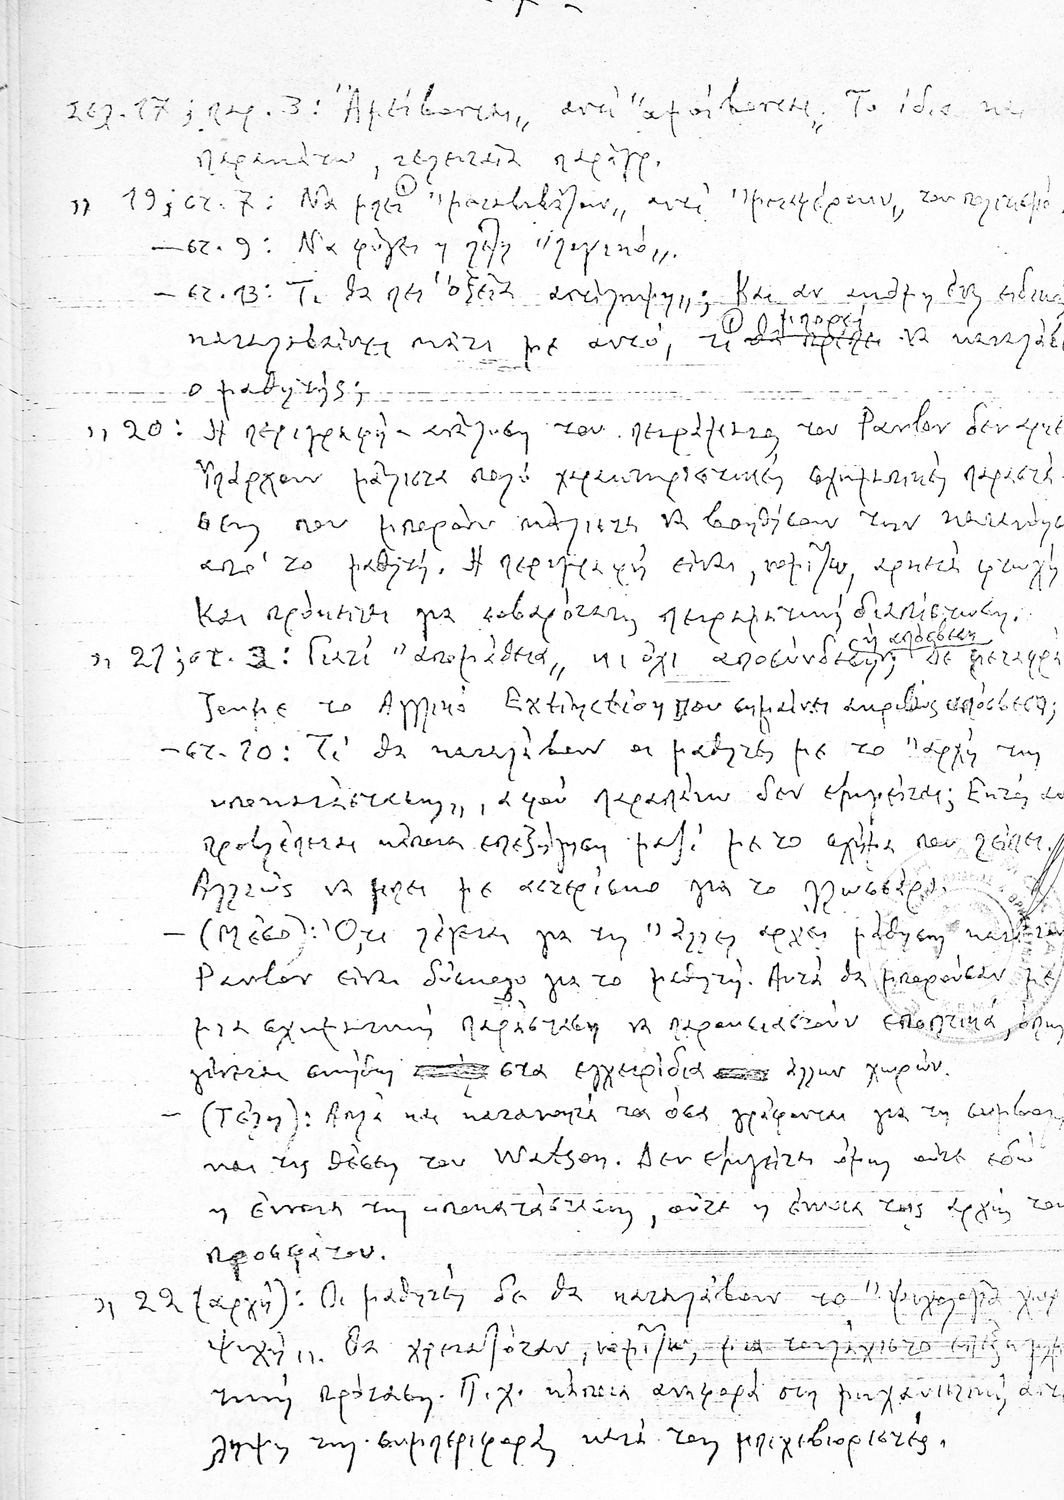 Σελ. 17, παρ. 3: "Αμείβονται" αντί "αμοίβονται". Το ίδιο και
παρακάτω, τελευταία παράγρ.
" 19, στ. 7: Να μπει "μεταβιβάζουν" αντί "μεταφέρουν" τον πολιτισμό.
— στ. 9: Να φύγει η λέξη "λογικό".
— στ. 13: Τι θα πει "οξεία αντίληψη"; Και αν ακόμη ένας ειδικός
καταλαβαίνει κάτι με αυτό, τι θα πρέπει μπορεί να καταλάβει
ο μαθητής;
" 20: Η περιγραφή - ανάλυση του πειράματος του Pavlov δεν αρκεί
Υπάρχουν μάλιστα πολύ χαρακτηριστικές σχηματικές παραστά-
σεις που μπορούν κάλλιστα να βοηθήσουν την κατανόηση
από το μαθητή. Η περιγραφή είναι, νομίζω, αρκετά φτωχή
Και πρόκειται για σοβαρότατη πειραματική διαπίστωση.
" 21, στ. 3: Γιατί "απομάθεια" κι όχι αποσύνδεση, ή απόσβεση; Δε μεταφρά
ζουμε το Αγγλικό Extinction που σημαίνει ακριβώς απόσβεση;
— στ. 10: Τι θα καταλάβουν οι μαθητές με το "αρχή της
υποκατάστασης", αφού παραπάνω δεν εξηγείται; Εκτός αν
προβλέπεται κάποια επεξήγηση μαζί με το σχήμα που λείπει.
Αλλιώς να μπει με αστερίσκο για το γλωσσάρι.
— (Μέσο): Ό,τι λέγεται για τις "άλλες αρχές μάθησης κατά τον
Pavlov είναι δύσκολο για το μαθητή. Αυτά θα μπορούσαν με
μια σχηματική παράσταση να παρουσιαστούν εποπτικά, όπως
γίνεται συνήθως στα εγχειρίδια άλλων χωρών.
— (Τέλη): Απλά και κατανοητά τα όσα γράφονται για τη συμβολή
και τις θέσεις του Watson. Δεν εξηγείται όμως ούτε εδώ
η έννοια της υποκατάστασης, ούτε η έννοια της αρχής του
προσφάτου.
" 22 (αρχή): Οι μαθητές δε θα καταλάβουν το "ψυχολογία χωρίς
ψυχή". Θα χρειαζόταν, νομίζω, μια τουλάχιστο επεξηγημα
τική πρόταση. Π.χ. κάποια αναφορά στη μηχανιστική αντί
ληψη της συμπεριφοράς κατά τους μπιχεβιοριστές.